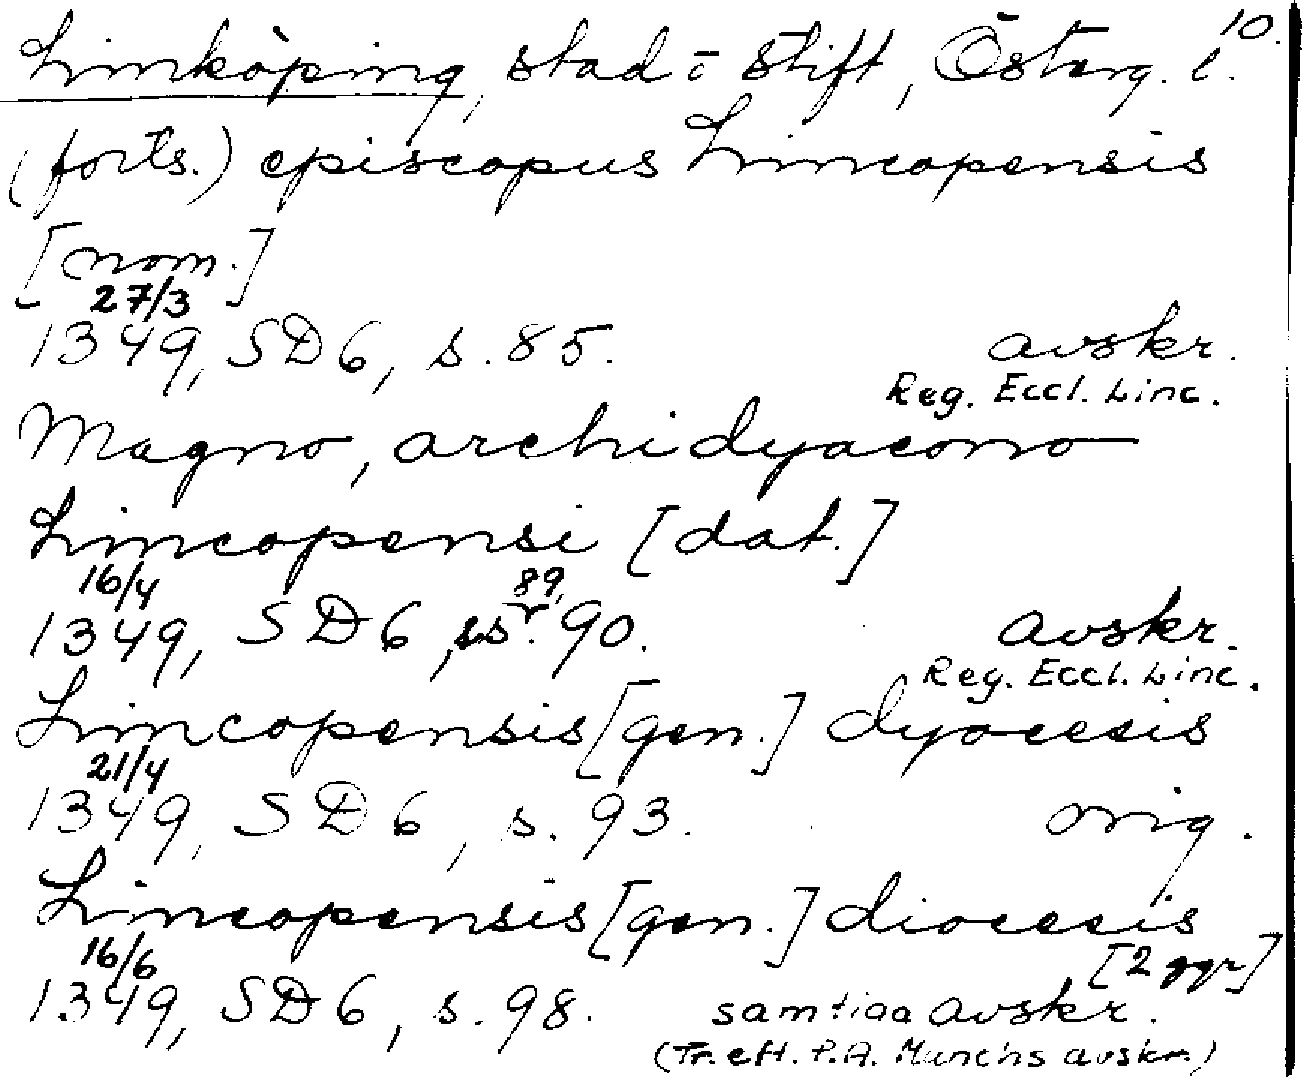 10.
Linköping, stad o stift, Österg. l.
(forts.) episcopus Lincopensis
[nom.]
27/3
1349, SD6, s. 85. avskr.
Reg. Eccl. Linc.
Magno, archidyacono
Lincopensi [dat.]
16/4 89,
1349, SD6, s. 90. avskr.
Reg. Eccl. Linc.
Lincopensis [gen.] dyocesis
21/4
1349, SD6, s. 93. orig.
Lincopensis [gen.] diocesis
16/6 [2 ggr]
1349, SD6, s. 98. samtida avskr.
(Tr. eft. P.A. Munchs avskr.)